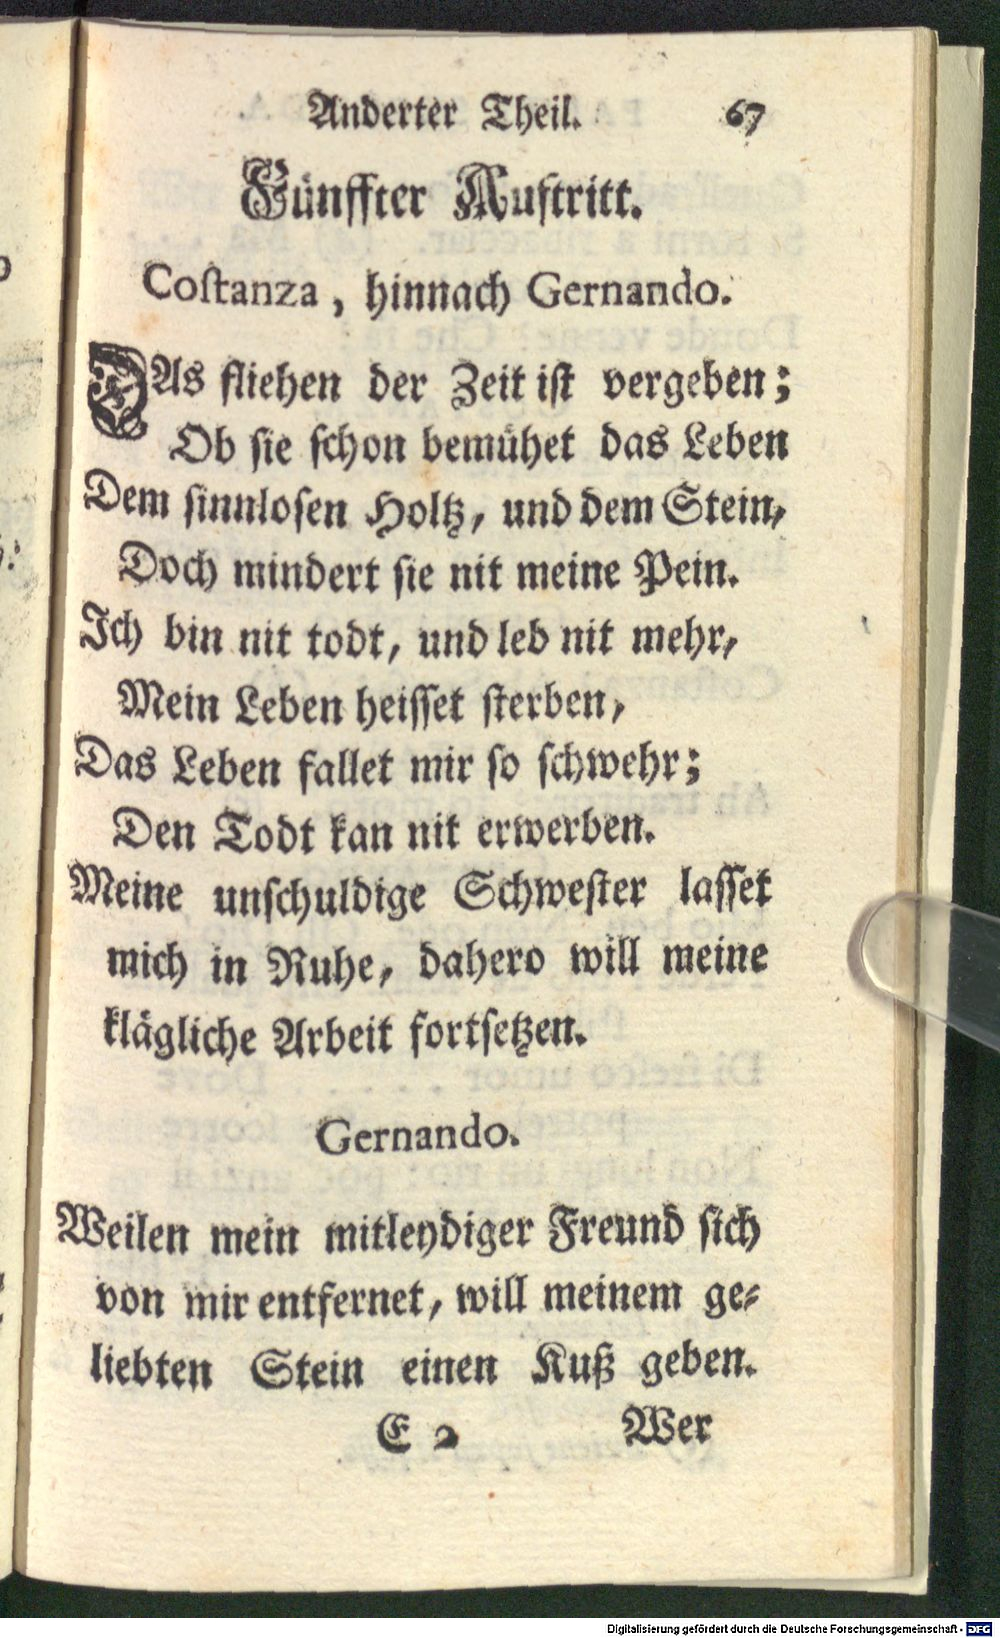 Anderter Theil. 67
Fünffter Auftritt.
Costanza, hinnach Gernando.
DAs fliehen der Zeit ist vergeben;
Ob sie schon bemühet das Leben
Dem sinnlosen Holtz, und dem Stein,
Doch mindert sie nit meine Pein.
Ich bin nit todt, und leb nit mehr,
Mein Leben heisset sterben,
Das Leben fallet mir so schwehr;
Den Todt kan nit erwerben.
Meine unschuldige Schwester lasset
mich in Ruhe, dahero will meine
klägliche Arbeit fortsetzen.
Gernando.
Weilen mein mitleydiger Freund sich
von mir entfernet, will meinem ge-
liebten Stein einen Kuß geben.
E 2 Wer
Digitalisierung gefördert durch die Deutsche Forschungsgemeinschaft - DFG